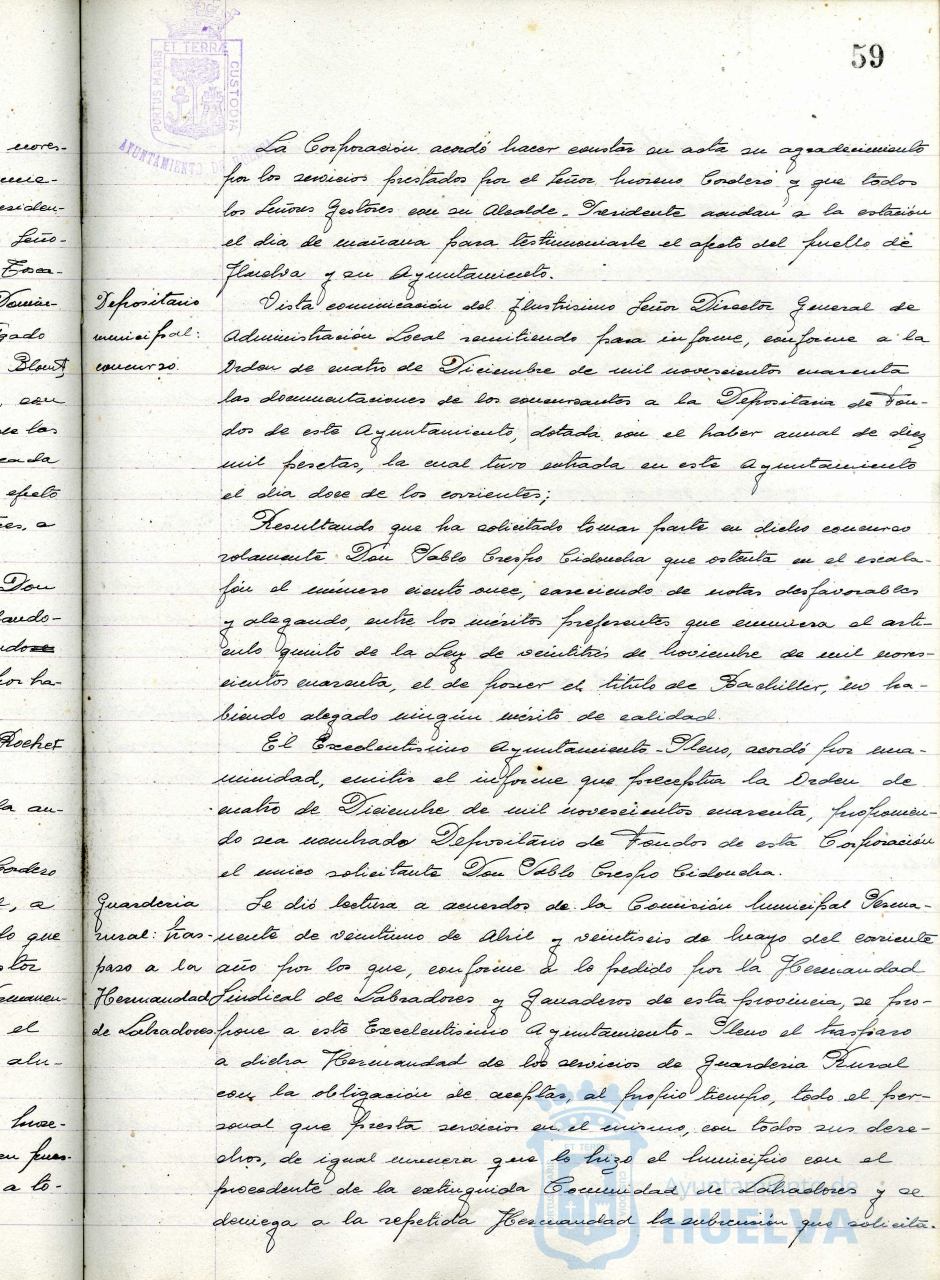 59
PORTUS MARIS ET TERRÆ CUSTODIA
AYUNTAMIENTO DE HUELVA
La Corporación acordó hacer constar en acta su agradecimiento
por los servicios prestados por el Señor Moreno Cordero y que todos
los Señores Gestores con su Alcalde-Presidente acudan a la estación
el dia de mañana para testimoniarle el afecto del pueblo de
Huelva y su Ayuntamiento.
Depositario
municipal:
concurso.
Vista comunicación del Ilustrisimo Señor Director General de
Administración Local remitiendo para informe, conforme a la
Orden de cuatro de Diciembre de mil novecientos cuarenta
las documentaciones de los concursantes a la Depositaria de Fon-
dos de este Ayuntamiento, dotada con el haber anual de diez
mil pesetas, la cual tuvo entrada en este Ayuntamiento
el dia doce de los corrientes;
Resultando que ha solicitado tomar parte en dicho concurso
solamente Don Pablo Crespo Cidoncha que ostenta en el escala-
fón el número ciento once, careciendo de notas desfavorables
y alegando, entre los méritos preferentes que enumera el arti-
culo quinto de la Ley de veintitrés de Noviembre de mil nove-
cientos cuarenta, el de poseer el titulo de Bachiller, no ha-
biendo alegado ningún mérito de calidad.
El Excelentisimo Ayuntamiento-Pleno, acordó por una-
nimidad, emitir el informe que preceptua la Orden de
cuatro de Diciembre de mil novecientos cuarenta, proponien-
do sea nombrado Depositario de Fondos de esta Corporación
el unico solicitante Don Pablo Crespo Cidoncha.
Guarderia
rural: tras-
paso a la
Hermandad
de Labradores
Se dió lectura a acuerdos de la Comisión Municipal Perma-
nente de veintiuno de Abril y veintiseis de Mayo del corriente
año por los que, conforme a lo pedido por la Hermandad
Sindical de Labradores y Ganaderos de esta provincia, se pro-
pone a este Excelentisimo Ayuntamiento-Pleno el traspaso
a dicha Hermandad de los servicios de Guarderia Rural
con la obligación de aceptar, al propio tiempo, todo el per-
sonal que presta servicios en el mismo, con todos sus dere-
chos, de igual manera que lo hizo el Municipio con el
procedente de la extinguida Comunidad de Labradores y se
deniega a la repetida Hermandad la subvención que solicita.
Ayuntamiento de
HUELVA